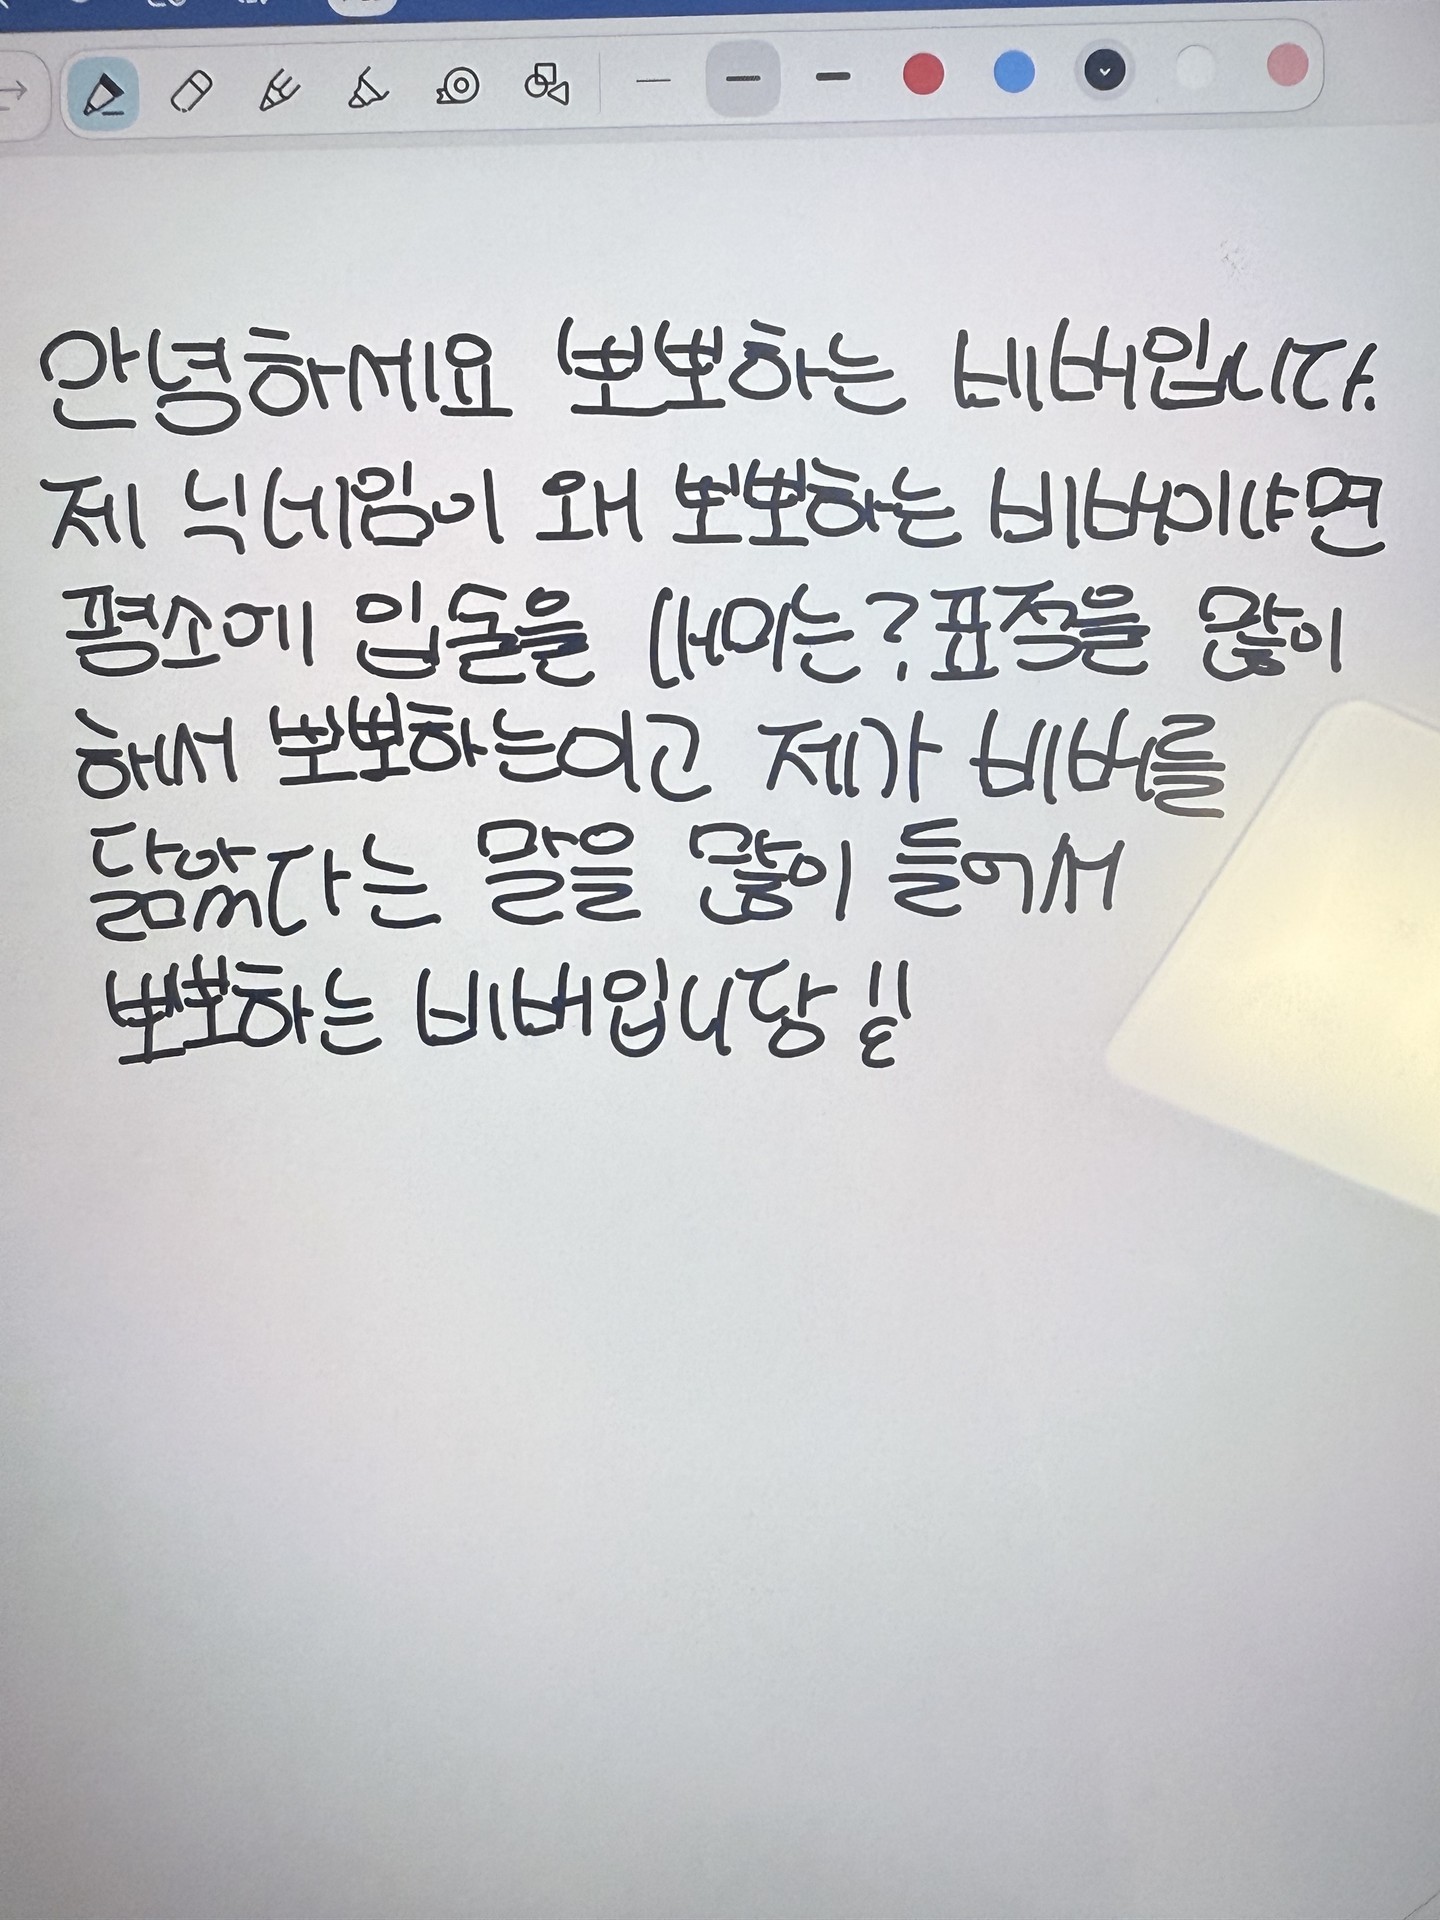 안녕하세요 뽀뽀하는 비버입니다.
제 닉네임이 왜 뽀뽀하는 비버이냐면
평소에 입술을 내미는? 표적을 많이
하서 뽀뽀하는이고 제가 비버를
닮았다는 말을 많이 들어서
뽀뽀하는 비버입니당 !!